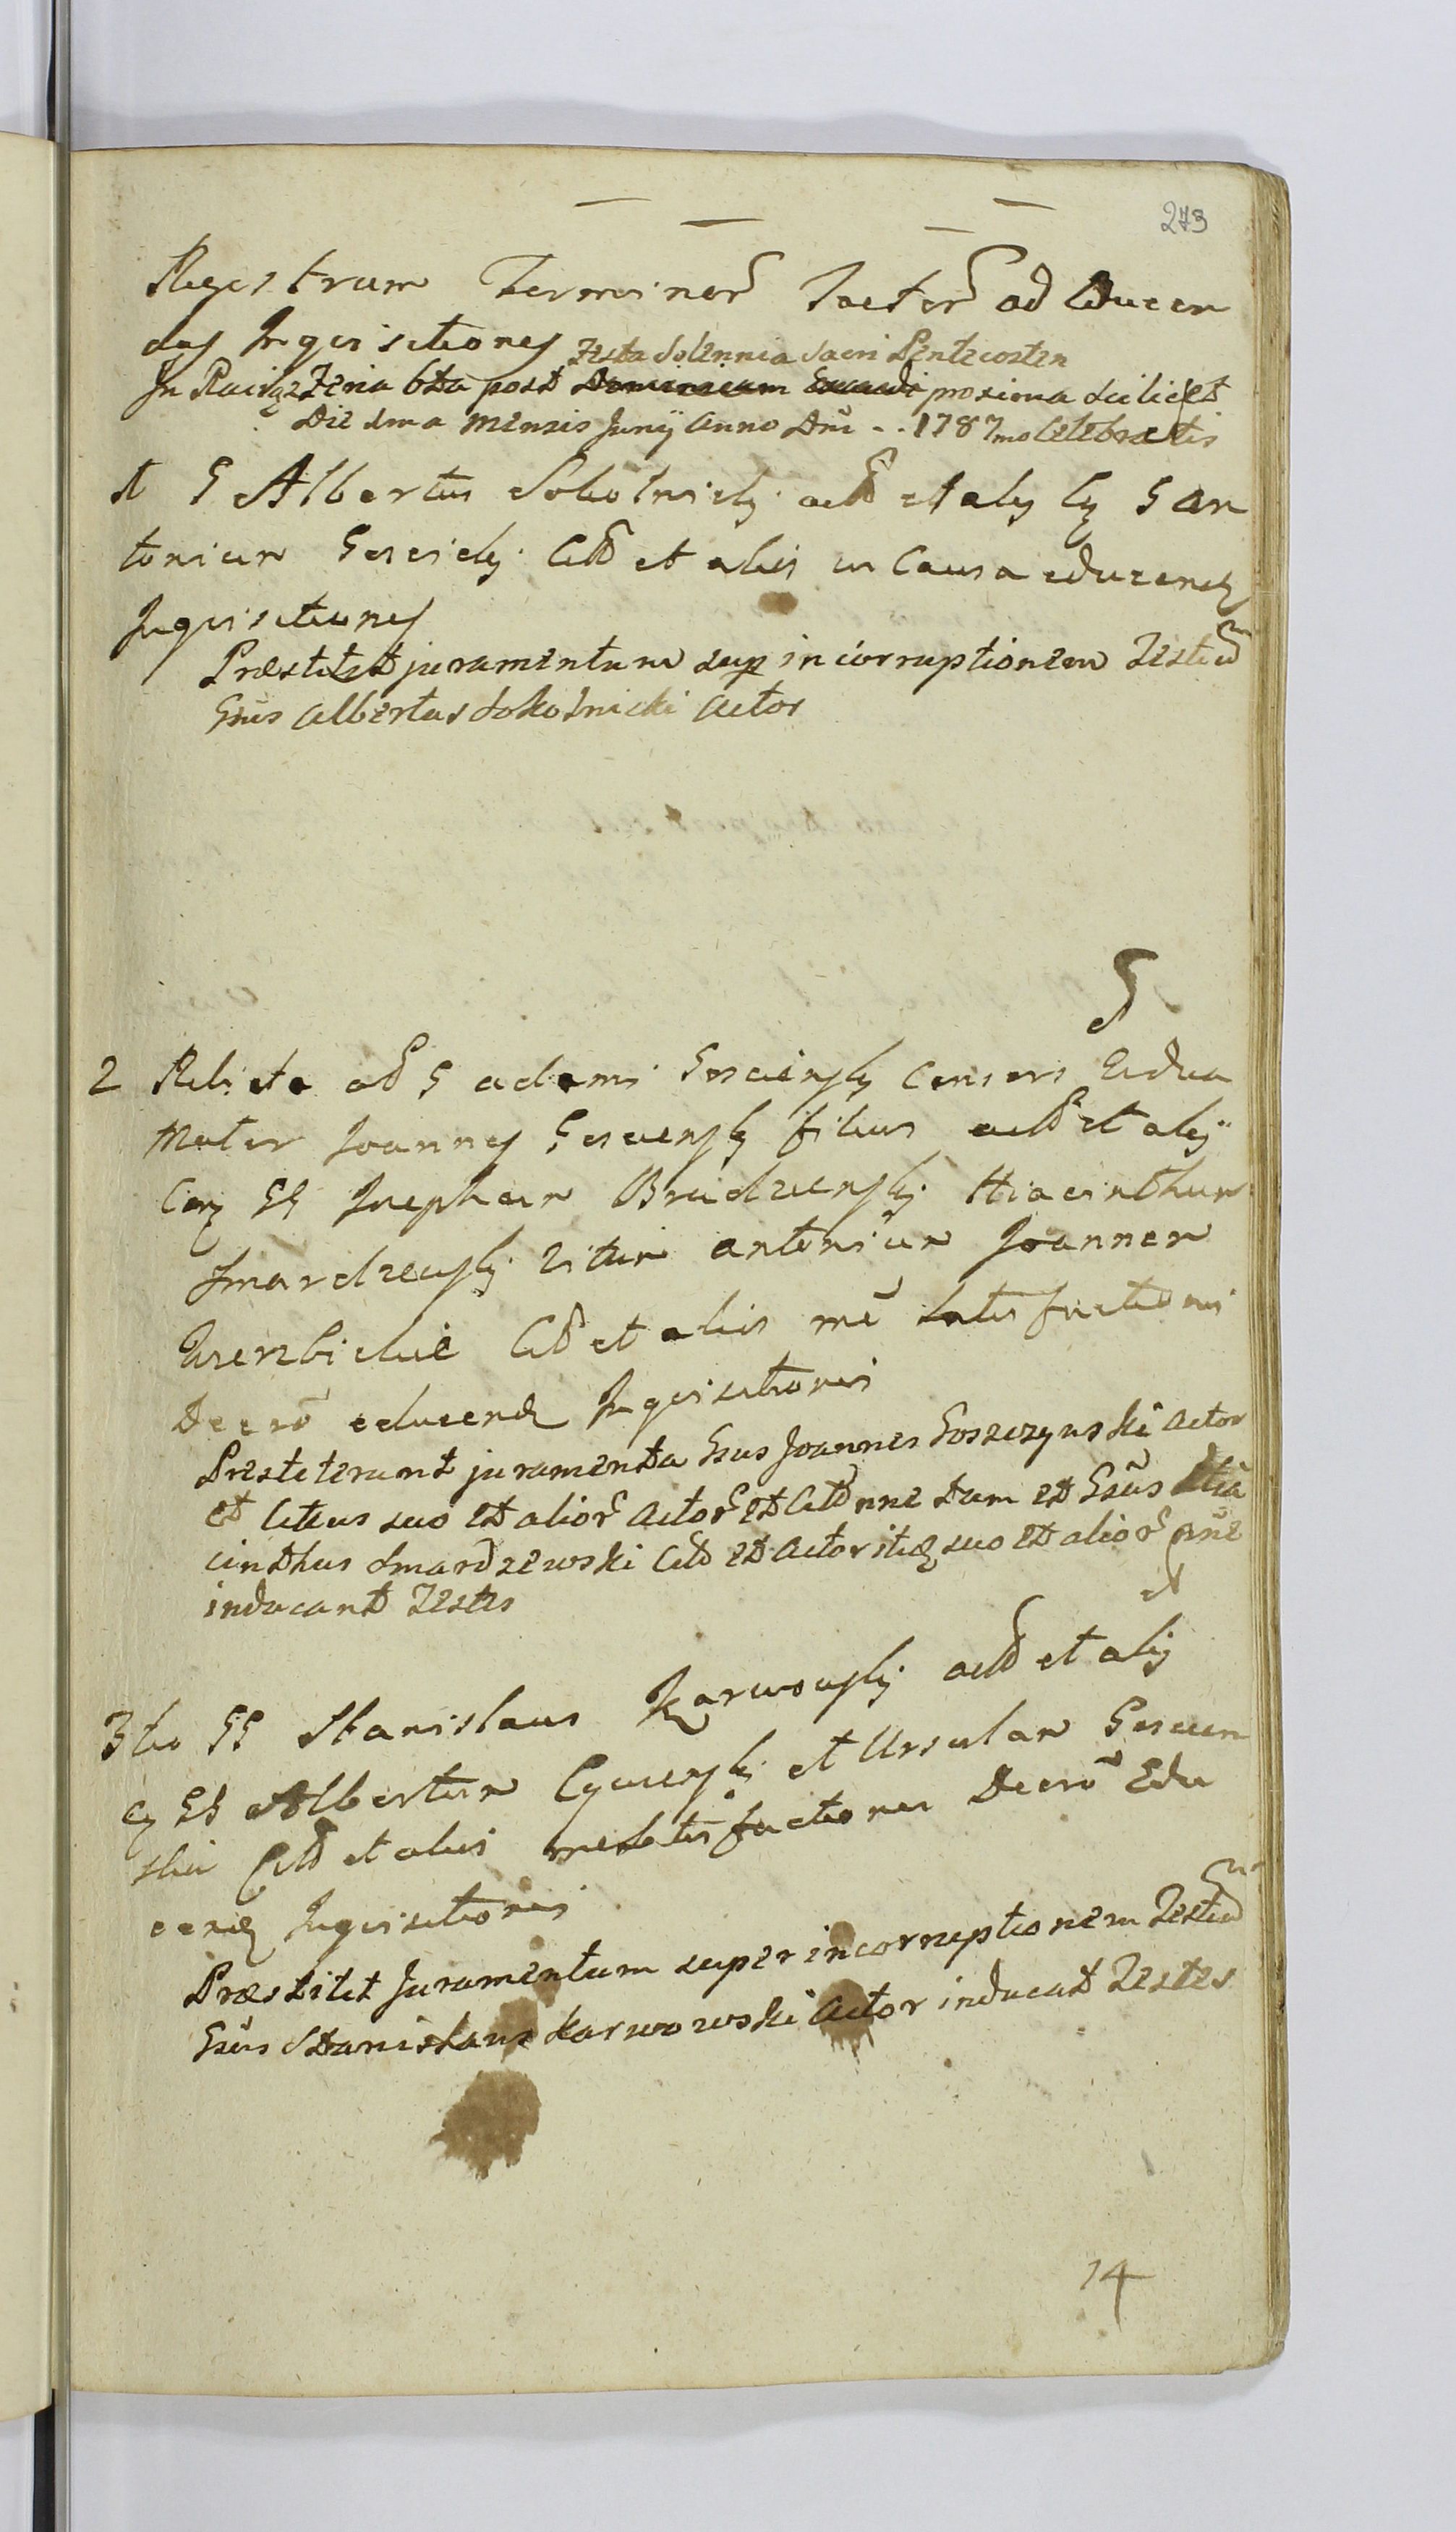 273
Registrum Terminor Tactor ad Educen
das Inquisitiones Festa Solennia Sacri Pentecosten
In Raciąze Feria 6ta post Dominicam Exaudi proxima scilicet
Die 1ma Mensis Junij Anno Dni - - 1787mo Celebratis
1 G Albertus Sokolnicky act et alij Cq G An
tonium Gorcicky Citt et aliis in Causa educend
Inquisitiones
Præstitit juramentum sup incorruptionem Testiu
Gsus Albertus Sokolnicki Actor
G
2 Relicta od G Adami Gosciensky Consors Vidua
Mater Joannes Gosciensky filius act et alij
Conq GG Josephum Brudzensky Hiacinthum
Smardzewsky Vitum Antonium Joannem
Citt et aliis me Satisfactionis
Decro educend Inquisitionis
Prestiterunt juramenta Gsus Joannes Goszczynski Actor
et Citus suo et alior Actor et Citt nne tum et Gsus Hia
cinthus Smardzewski Citt et Actor itidq suo et alior nne
inducant Testes
3tio GG Stanislaus Karwowsky act et alij
Cq GG Albertum et Ursulam Goscien
skie Citt et aliis me Satisfactionis Decro Edu
cend Inquisitionis
Præstitit Juramentum super incorruptionem Testiu
Gsus Stanislaus Karwowski Actor inducat Testes
14